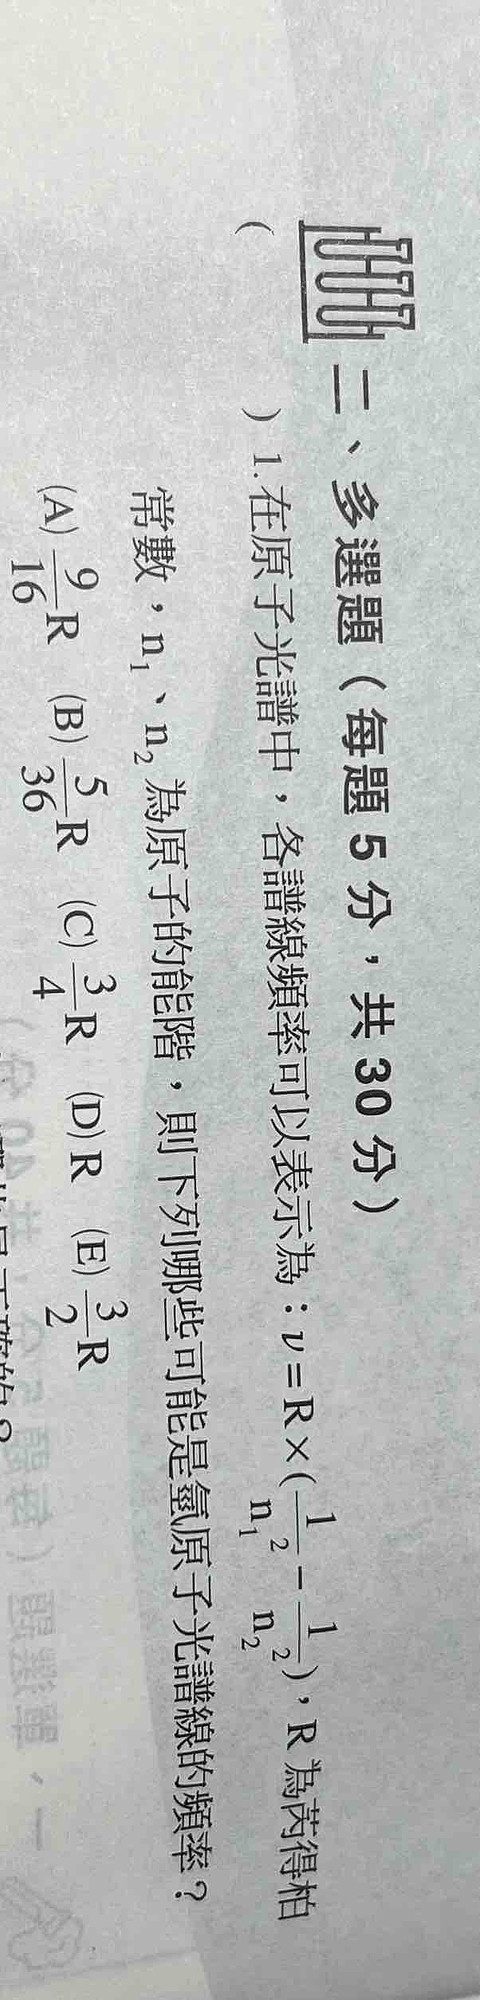 二、多選題（每題 5 分，共 30 分）
（　　）1. 在原子光譜中，各譜線頻率可以表示為：ν = R × (1/n₁² − 1/n₂²)，R 為芮得柏
常數，n₁、n₂ 為原子的能階，則下列哪些可能是氫原子光譜線的頻率？
(A) 9/16 R　(B) 5/36 R　(C) 3/4 R　(D) R　(E) 3/2 R